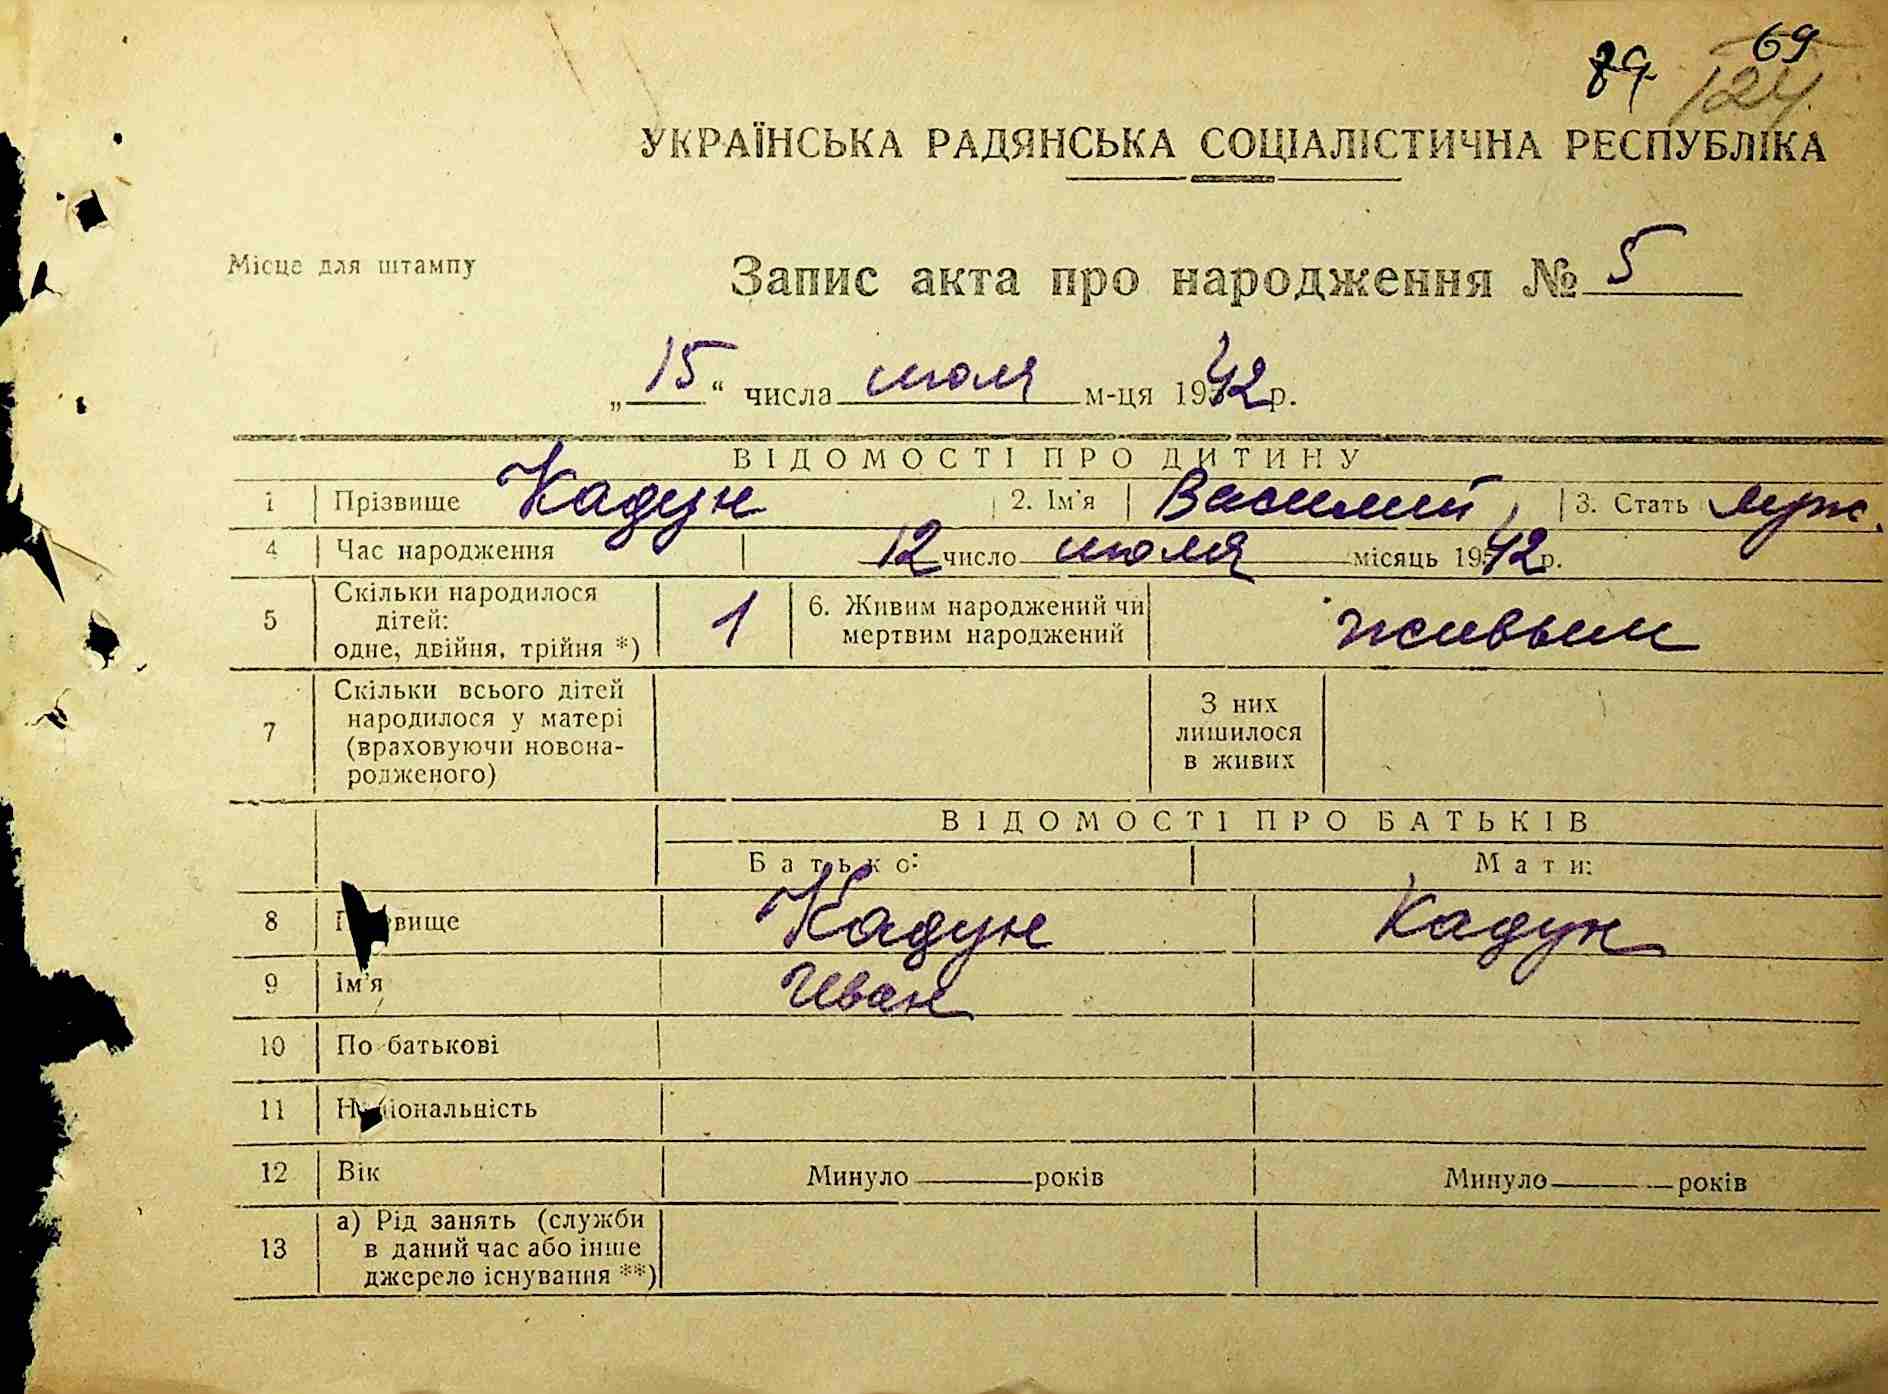 69
89 124
УКРАЇНСЬКА РАДЯНСЬКА СОЦІАЛІСТИЧНА РЕСПУБЛІКА
Місце для штампу
Запис акта про народження № 5
„ 15 “ числа июля м-ця 1942 р.
ВІДОМОСТІ ПРО ДИТИНУ
1 Прізвище Кадун 2. Ім'я Василий 3. Стать муж.
4 Час народження 12 число июля місяць 1942 р.
5 Скільки народилося дітей: одне, двійня, трійня *) 1 6. Живим народжений чи мертвим народжений живым
7 Скільки всього дітей народилося у матері (враховуючи новона-родженого) З них лишилося в живих
ВІДОМОСТІ ПРО БАТЬКІВ
Батько: Мати:
8 вище Кадун Кадун
9 Ім'я Иван
10 По батькові
11 Н іональність
12 Вік Минуло років Минуло років
13 а) Рід занять (служби в даний час або інше джерело існування **)